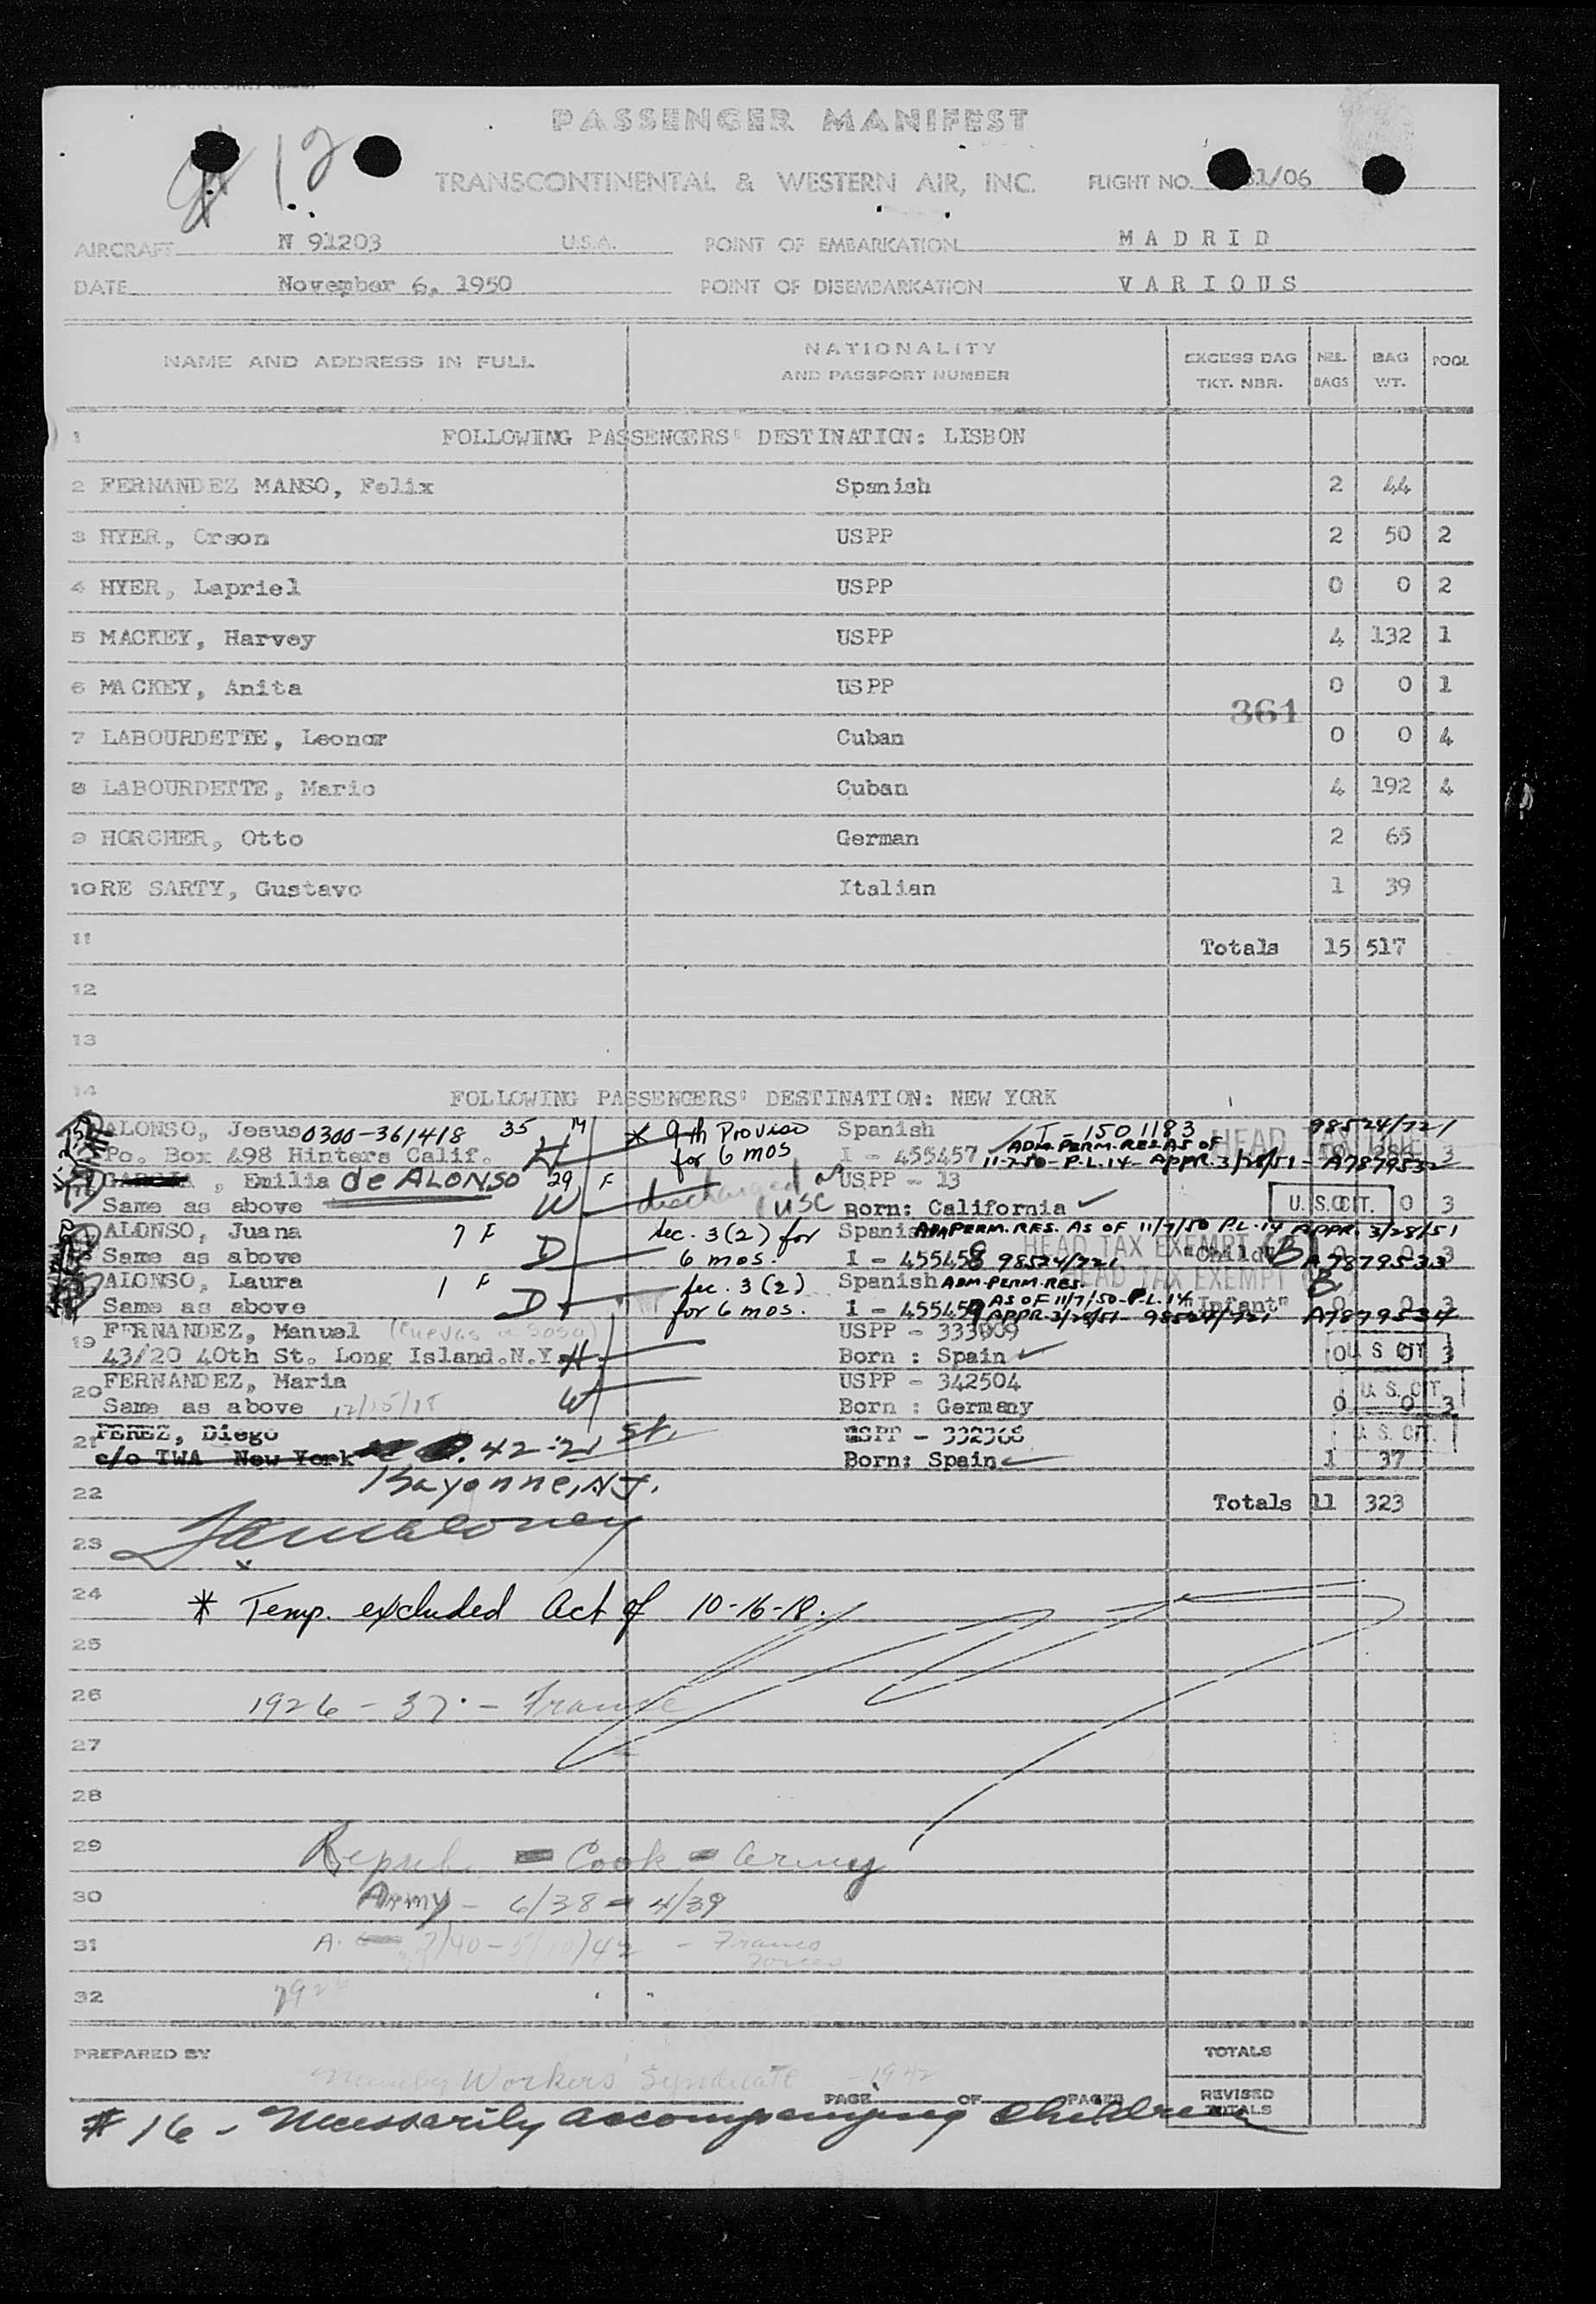 # 12
PASSENGER MANIFEST
TRANSCONTINENTAL & WESTERN AIR, INC. FLIGHT NO. 31/06
AIRCRAFT N 91203 U.S.A. POINT OF EMBARKATION MADRID
DATE November 6, 1950 POINT OF DISEMBARKATION VARIOUS
NAME AND ADDRESS IN FULL NATIONALITY AND PASSPORT NUMBER EXCESS BAG TKT. NBR. BAGS BAG WT. POOL
1 FOLLOWING PASSENGERS' DESTINATION: LISBON
2 FERNANDEZ MANSO, Felix Spanish 2 44
3 HYER, Orson USPP 2 50 2
4 HYER, Lapriel USPP 0 0 2
5 MACKEY, Harvey USPP 4 132 1
6 MACKEY, Anita USPP 0 0 1
361
7 LABOURDETTE, Leonor Cuban 0 0 4
8 LABOURDETTE, Mario Cuban 4 192 4
9 HORCHER, Otto German 2 65
10 RE SARTY, Gustavo Italian 1 39
11 Totals 15 517
12
13
14 FOLLOWING PASSENGERS' DESTINATION: NEW YORK
ALONSO, Jesus 0300-361418 35 M * 9th Proviso Spanish T-1501183 98524/721
Po. Box 498 Hinters Calif. H for 6 mos I - 455457 ADM. PERM. RES. AS OF 11-7-50-P.L.14-APPR. 3/28/51- A7879532 3
HEAD TAX
GARCIA, Emilia de ALONSO 29 F discharged USPP - 13
Same as above W USC Born: California U. S. CIT. 0 3
ALONSO, Juana 7 F Sec. 3(2) for Spanish ADM. PERM. RES. AS OF 11/7/50 P.L. 14 APPR. 3/28/51
Same as above D 6 mos. I - 455458 98524/721 "Child" B A7879533 3
HEAD TAX EXEMPT
ALONSO, Laura 1 F Sec. 3(2) Spanish ADM. PERM. RES.
HEAD TAX EXEMPT B
Same as above D for 6 mos. I - 455459 AS OF 11/7/50-P.L.14 APPR. 3/28/51- 98524/721 "Infant" A7879534 0 0 3
19 FERNANDEZ, Manuel USPP - 333009
43/20 40th St. Long Island.N.Y. H Born : Spain U S CIT 0 0 3
20 FERNANDEZ, Maria USPP - 342504
Same as above 12/15/18 W Born : Germany U. S. CIT. 0 0 3
21 PEREZ, Diego USPP - 332368
c/o TWA New York 42 - 21 St. Born: Spain U. S. CIT. 1 37
Bayonne, N.J.
22 Totals 11 323
23
24 * Temp. excluded Act of 10-16-18.
25
26 1926 - 37 - France
27
28
29 Repub. - Cook - Army
30 Army - 6/38 - 4/39
31 A. Franco
Forces
32
PREPARED BY TOTALS
Workers' Syndicate - 1942
PAGE OF PAGES REVISED TOTALS
# 16 - Necessarily accompanying children